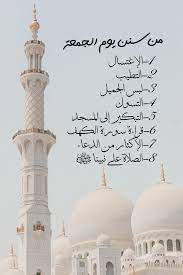 من سنن يوم الجمعة
1- الإغتسال
2- التطيب
3- لبس الجميل
4- التسوك
5- التبكير إلى المسجد
6- قراءة سورة الكهف
7- الأكثار من الدعاء
8- الصلاة على نبينا ﷺ